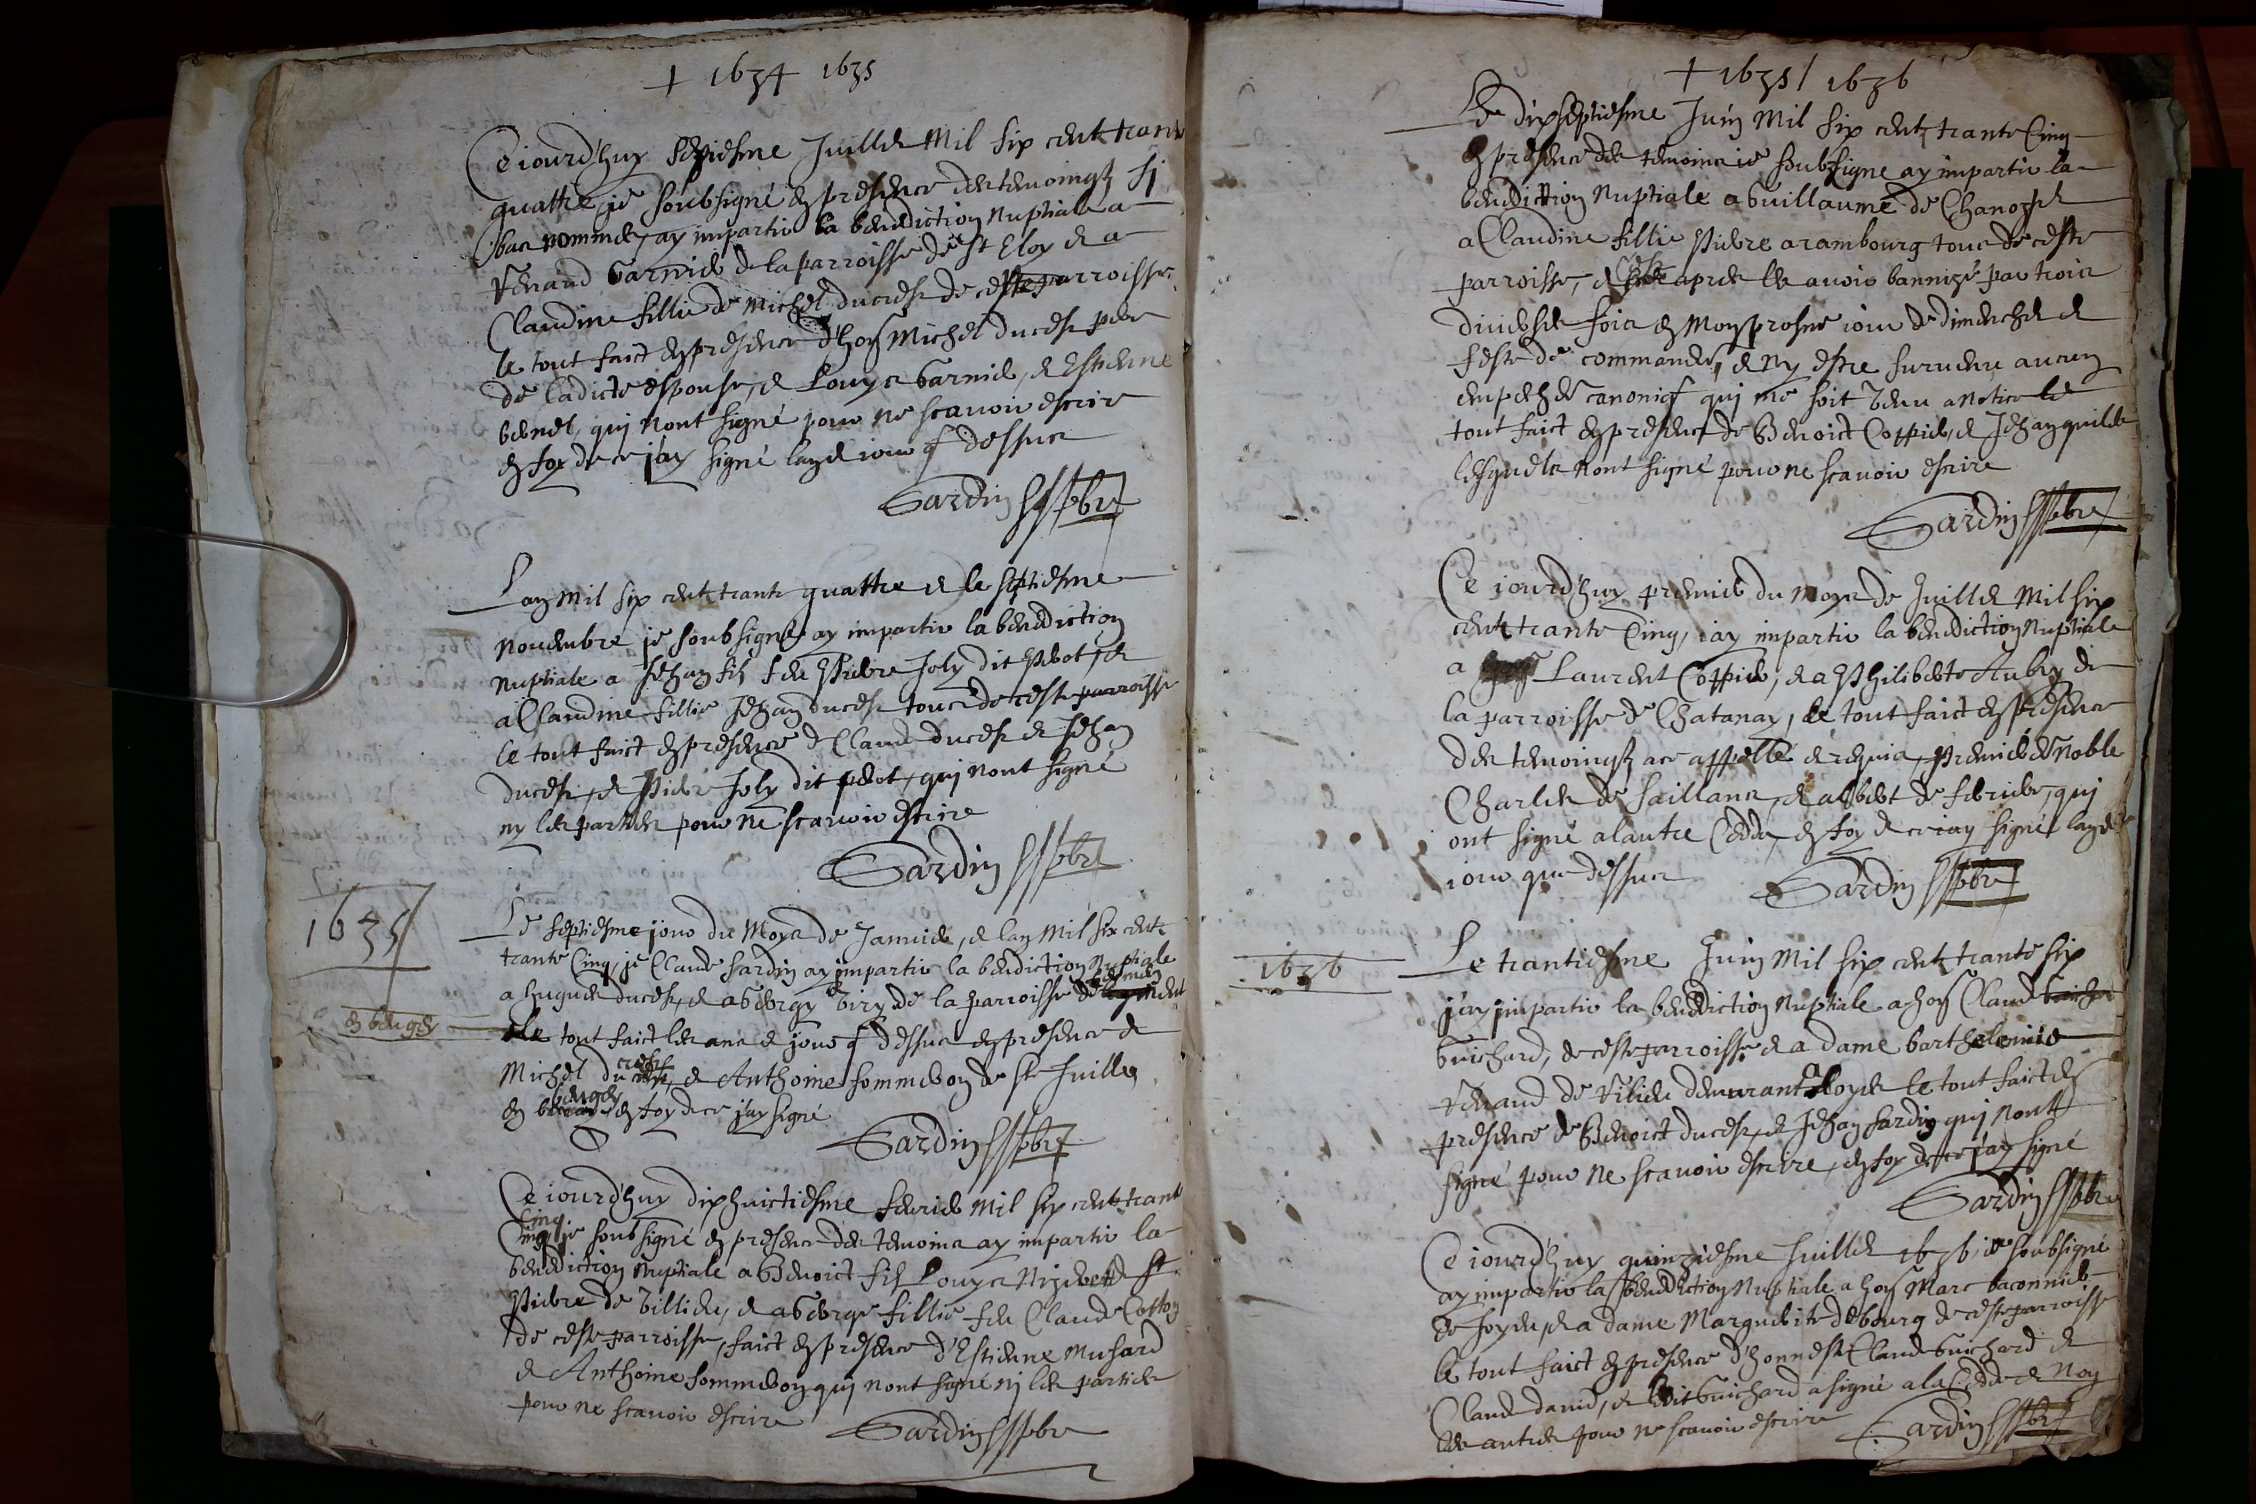 + 1634 1635
Ce jourd'huy septiesme Juillet Mil six centz trant
quattre je soubsigné en presence des temoingz si
bas nommez, ay imparti la benediction nuptiale a
Venand Garnier de la parroisse de St Eloy et a
Claudine fillie de Michel ducrest de ceste parroisse
le tout faict en presence d'hon Michel ducrest pere
de ladicte espouse, et Louys Garnier, et Estienne
benet, qui n'ont signé pour ne scavoir escrire
en foy de ce j'ay signé l'an et jour q dessus
Sardin pbre
L'an Mil six centz trante quattre et le septiesme
Novembre je soubsigné ay imparti la benediction
Nuptiale a Jehan filz feu Pierre Joly dit Perot, et
a Claudine fillie Jehan ducrest tous de ceste parroisse
le tout faict en presence d Claude ducrest et Jehan
ducrest, et Pierre Joly dit perot, qui n'ont signé
ny les parties pour ne scavoir escrire
Sardin pbre
1635
Le septiesme jour du Moys de Janvier, et l'an Mil six centz
trante Cinq, je Claude Sardin ay imparti la benediction Nuptiale
a hugues ducrest, et a George Biry de la parroisse de
en beuges
le tout faict les ans et jour q dessus en presence de
Michel ducrest, et Anthoine Sommeron de St Juille
en beuges en foy de ce j'ay signé
Sardin pbre
Ce jourd'huy dixhuictiesme febvrier Mil six centz trant
Cinq je soubsigné en presence des temoins ay imparti la
benediction Nuptiale a Benoict filz Louys Niziere de St
Pierre de Billieu, et a George fillie feu Claude Cotton
de ceste parroisse, faict en presence d'Estienne Musard
et Anthoine Sommeron qui n'ont signé nj les parties
pour ne scavoir escrire
Sardin pbre
+ 1635 / 1636
Le dixseptiesme Juin Mil six centz trante Cinq
en presence des temoins je soubsigné ay imparti la
benediction Nuptiale a Guillaume de Chanoz et
a Claudine fillie Pierre arambourg tous de ceste
parroisse, et apres les avoir bannizé par trois
diverses fois en Mon prosne jour de dimenche et
feste de commandez, et n'y estre survenu aucun
empeche canoniq qui me soit venu a notice le
tout faict en presence de Benoict Coppier, et Jehan quille
lesquels n'ont signé pour ne scavoir escrire
Sardin pbre
Ce jourd'huy premier du Moys de Juillet Mil six
centz trante Cinq, j'ay imparti la benediction Nuptiale
a Laurent Coppier, et a Philiberte Aubry de
la parroisse de Chatanay, le tout faict en presence
des temoingz a ce appellé et requis, premier Noble
Charles de Saillans, et albert de fevrier, qui
ont signé a l'autre Cedde, en foy de ce j'ay signé l'an et
jour que dessus
Sardin pbre
1636
Le trantiesme Juin Mil six centz trante six
j'ay imparti la benediction Nuptiale a hon Claude
Guichard, de ceste parroisse et a dame barthelemie
Venand de Vilieu demeurant a loyes le tout faict en
presence de Benoict ducrest, et Jehan Sardin qui n'ont
signé pour ne scavoir escrire, en foy de ce j'ay signé
Sardin pbre
Ce jourd'huy quinziesme Juillet 1636 je soubsigné
ay imparti la benediction Nuptiale a hon Marc baconnier
de Joyeu, et a dame Marguerite debourg de ceste parroisse
le tout faict en presence d'honneste Claude Guichard et
Claude david, et ledit Guichard a signé a la Cedde et Non
les autres pour ne scavoir escrire
Sardin pbre